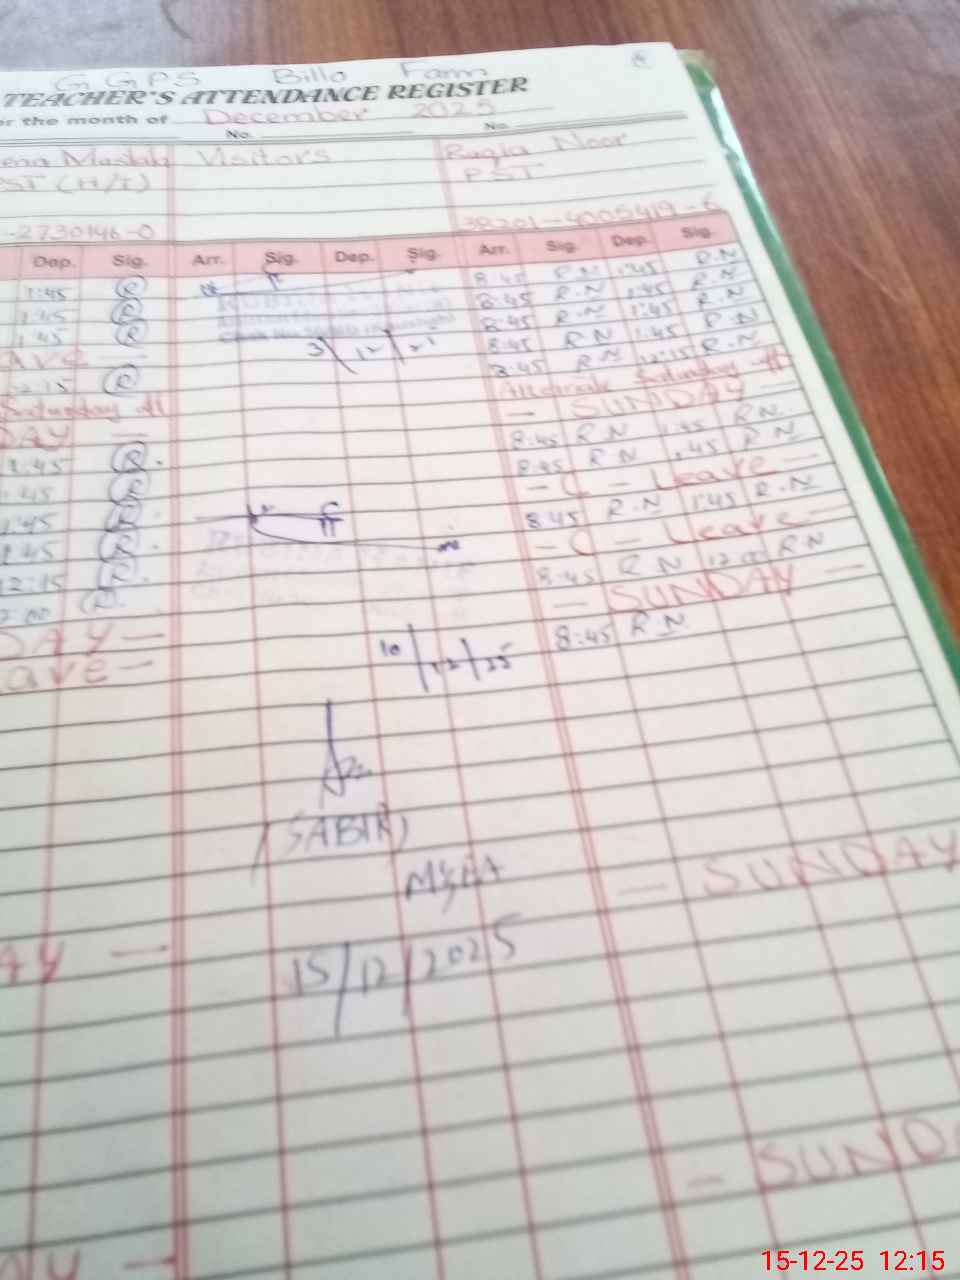 G G P S Billo Farm
TEACHER'S ATTENDANCE REGISTER
or the month of December 2025
No. No.
Visitors Ruqia Noor
PST (H/T) P.S.T
-2730146-0 38201-4005419-6
Dep. Sig. Arr. Sig. Dep. Sig. Arr. Sig. Dep. Sig.
1:45 R 8:45 R.N 1:45 R.N
1:45 R 8:45 R.N 1:45 R.N
1:45 R 8:45 R.N 1:45 R.N
ave — 3/12/ 8:45 R N 1:45 R.N
2:15 R 8:45 R N 12:15 R.N
Saturday off Alternate Saturday off
DAY — — SUNDAY —
1:45 R. 8:45 R N 1:45 R N.
1:45 R 8:45 R N 1:45 R N
1:45 R. — C — Leave —
1:45 R. 8:45 R.N 1:45 R.N
12:15 R. — C — Leave —
2:00 R. 8:45 R N 12:00 R N
DAY — — SUNDAY —
ave — 10/12/25 8:45 R.N.
(SABIR)
— SUNDAY
AY — 15/12/2025
— SUND
AY —
15-12-25 12:15